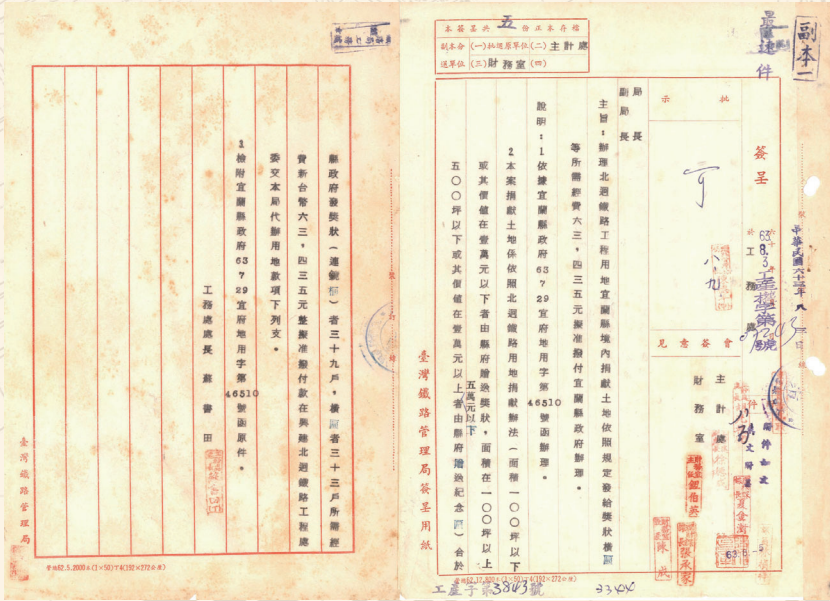 副本一
最速件
檔存本正份五共呈簽本
副本分(一)批退原單位(二)主計處
送單位(三)財務室(四)
簽呈
63.8.3
於工務處
中華民國六十三年八月三日
批示
可
八九
會簽意見
主計處
財務室
局長
副局長
主旨:辦理北迴鐵路工程用地宜蘭縣境內捐獻土地依照規定發給獎狀橫匾
等所需經費六三,四三五元擬准撥付宜蘭縣政府辦理。
說明:1依據宜蘭縣政府63 7 29宜府地用字第46510號函辦理。
2本案捐獻土地係依照北迴鐵路用地捐獻辦法(面積一〇〇坪以下
或其價值在壹萬元以下者由縣府贈給獎狀,面積在一〇〇坪以上
五〇〇坪以下或其價值在壹萬元以上五萬元以下者由縣府贈給紀念匾)合於
臺灣鐵路管理局簽呈用紙
工產字第3843號
3344
縣政府發獎狀(連鏡框)者三十九戶,橫匾者三十三戶所需經
費新台幣六三,四三五元整擬准撥付款在興建北迴鐵路工程處
委交本局代辦用地款項下列支。
3檢附宜蘭縣政府63 7 29宜府地用字第46510號函原件。
工務處處長 蘇書田
臺灣鐵路管理局